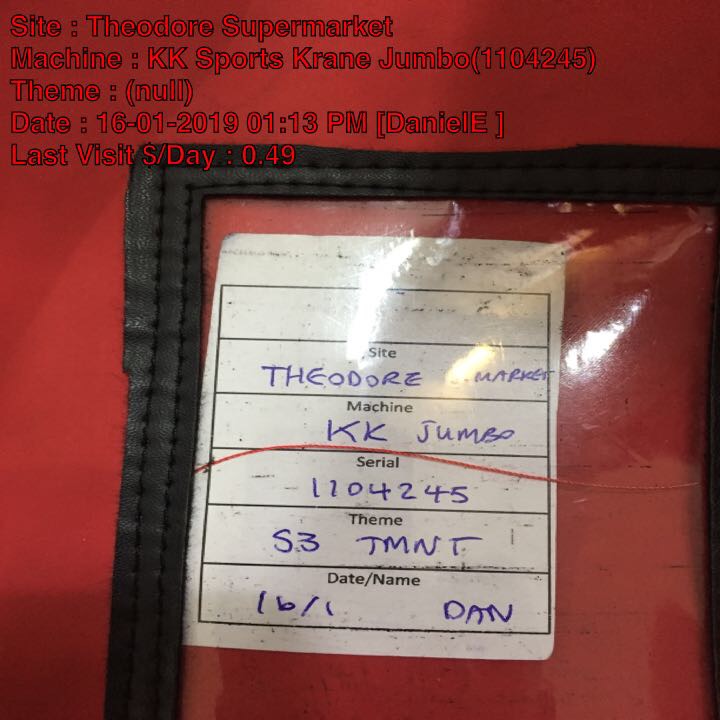 Site : Theodore Supermarket
Machine : KK Sports Krane Jumbo(1104245)
Theme : (null)
Date : 16-01-2019 01:13 PM [DanielE ]
Last Visit $/Day : 0.49
Site
THEODORE MARKET
Machine
KK JUMBO
Serial
1104245
Theme
S3 TMNT
Date/Name
16/1 DAN